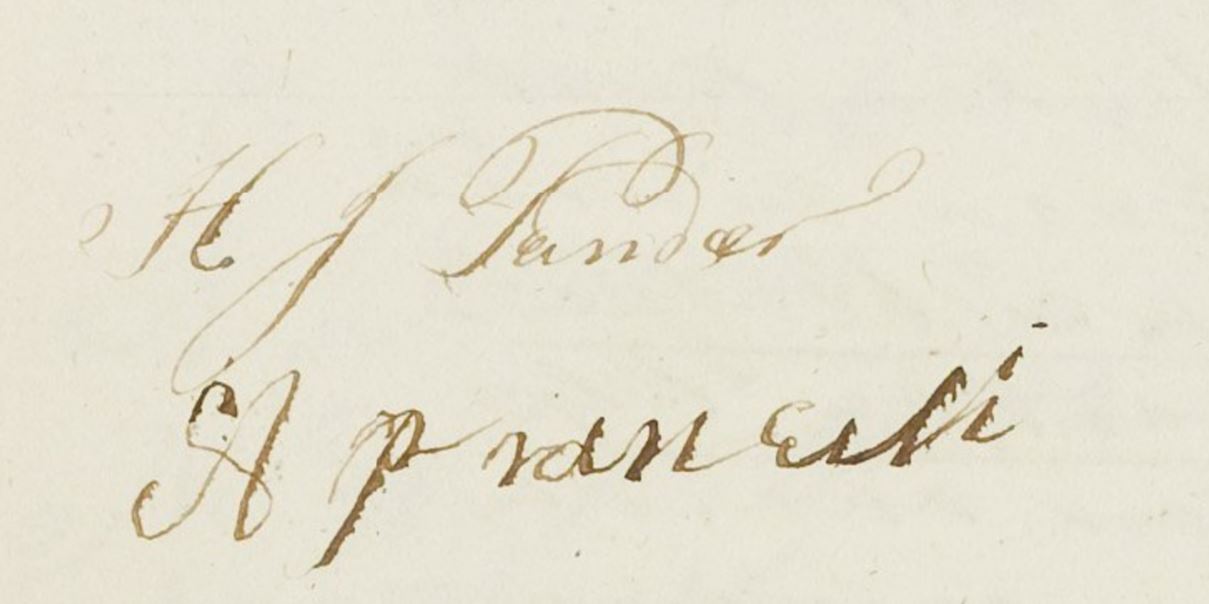 H J Pander
A pranelli